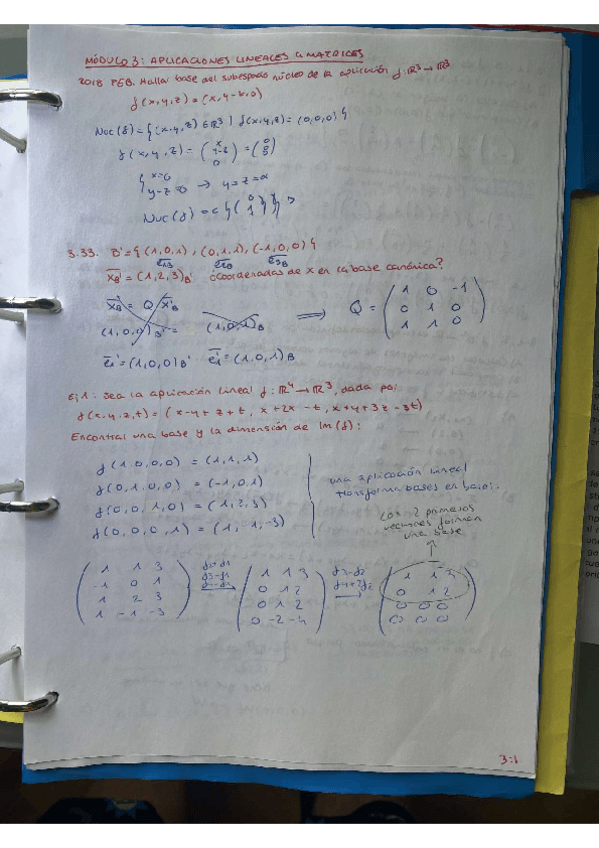 MÓDULO 3: APLICACIONES LINEALES Y MATRICES
2018 FEB. Hallar base del subespacio núcleo de la aplicación f: ℝ³ → ℝ³
f(x,y,z) = (x, y-z, 0)
Nuc(f) = { (x,y,z) ∈ ℝ³ | f(x,y,z) = (0,0,0) }
f(x,y,z) = (x y-z 0) = (0 0 0)
{ x=0
y-z=0 → y=z=α
3.33. B' = { (1,0,1), (0,1,1), (-1,0,0) }
x̄B' = (1,2,3)B' ¿Coordenadas de x en la base canónica?
x̄B = Q x̄'B
(1,0,0)B' = (1,0,1)B ⟹ Q = ( 1 0 -1
0 1 0
1 1 0 )
ē1' = (1,0,0)B' ē1' = (1,0,1)B
Ej 1: Sea la aplicación lineal f: ℝ⁴ → ℝ³, dada por
f(x,y,z,t) = (x-y+z+t, x+2z-t, x+y+3z-3t)
Encontrar una base y la dimensión de Im(f):
f(1,0,0,0) = (1,1,1)
f(0,1,0,0) = (-1,0,1)
f(0,0,1,0) = (1,2,3)
f(0,0,0,1) = (1,-1,-3)
una aplicación lineal
transforma bases en
Los 2 primeros
vectores forman
una base
1 1 3 1 1 3 1 1 3
-1 0 1 0 1 2 0 1 2
1 2 3 0 1 2 0 0 0
1 -1 -3 0 -2 -4 0 0 0
3:1